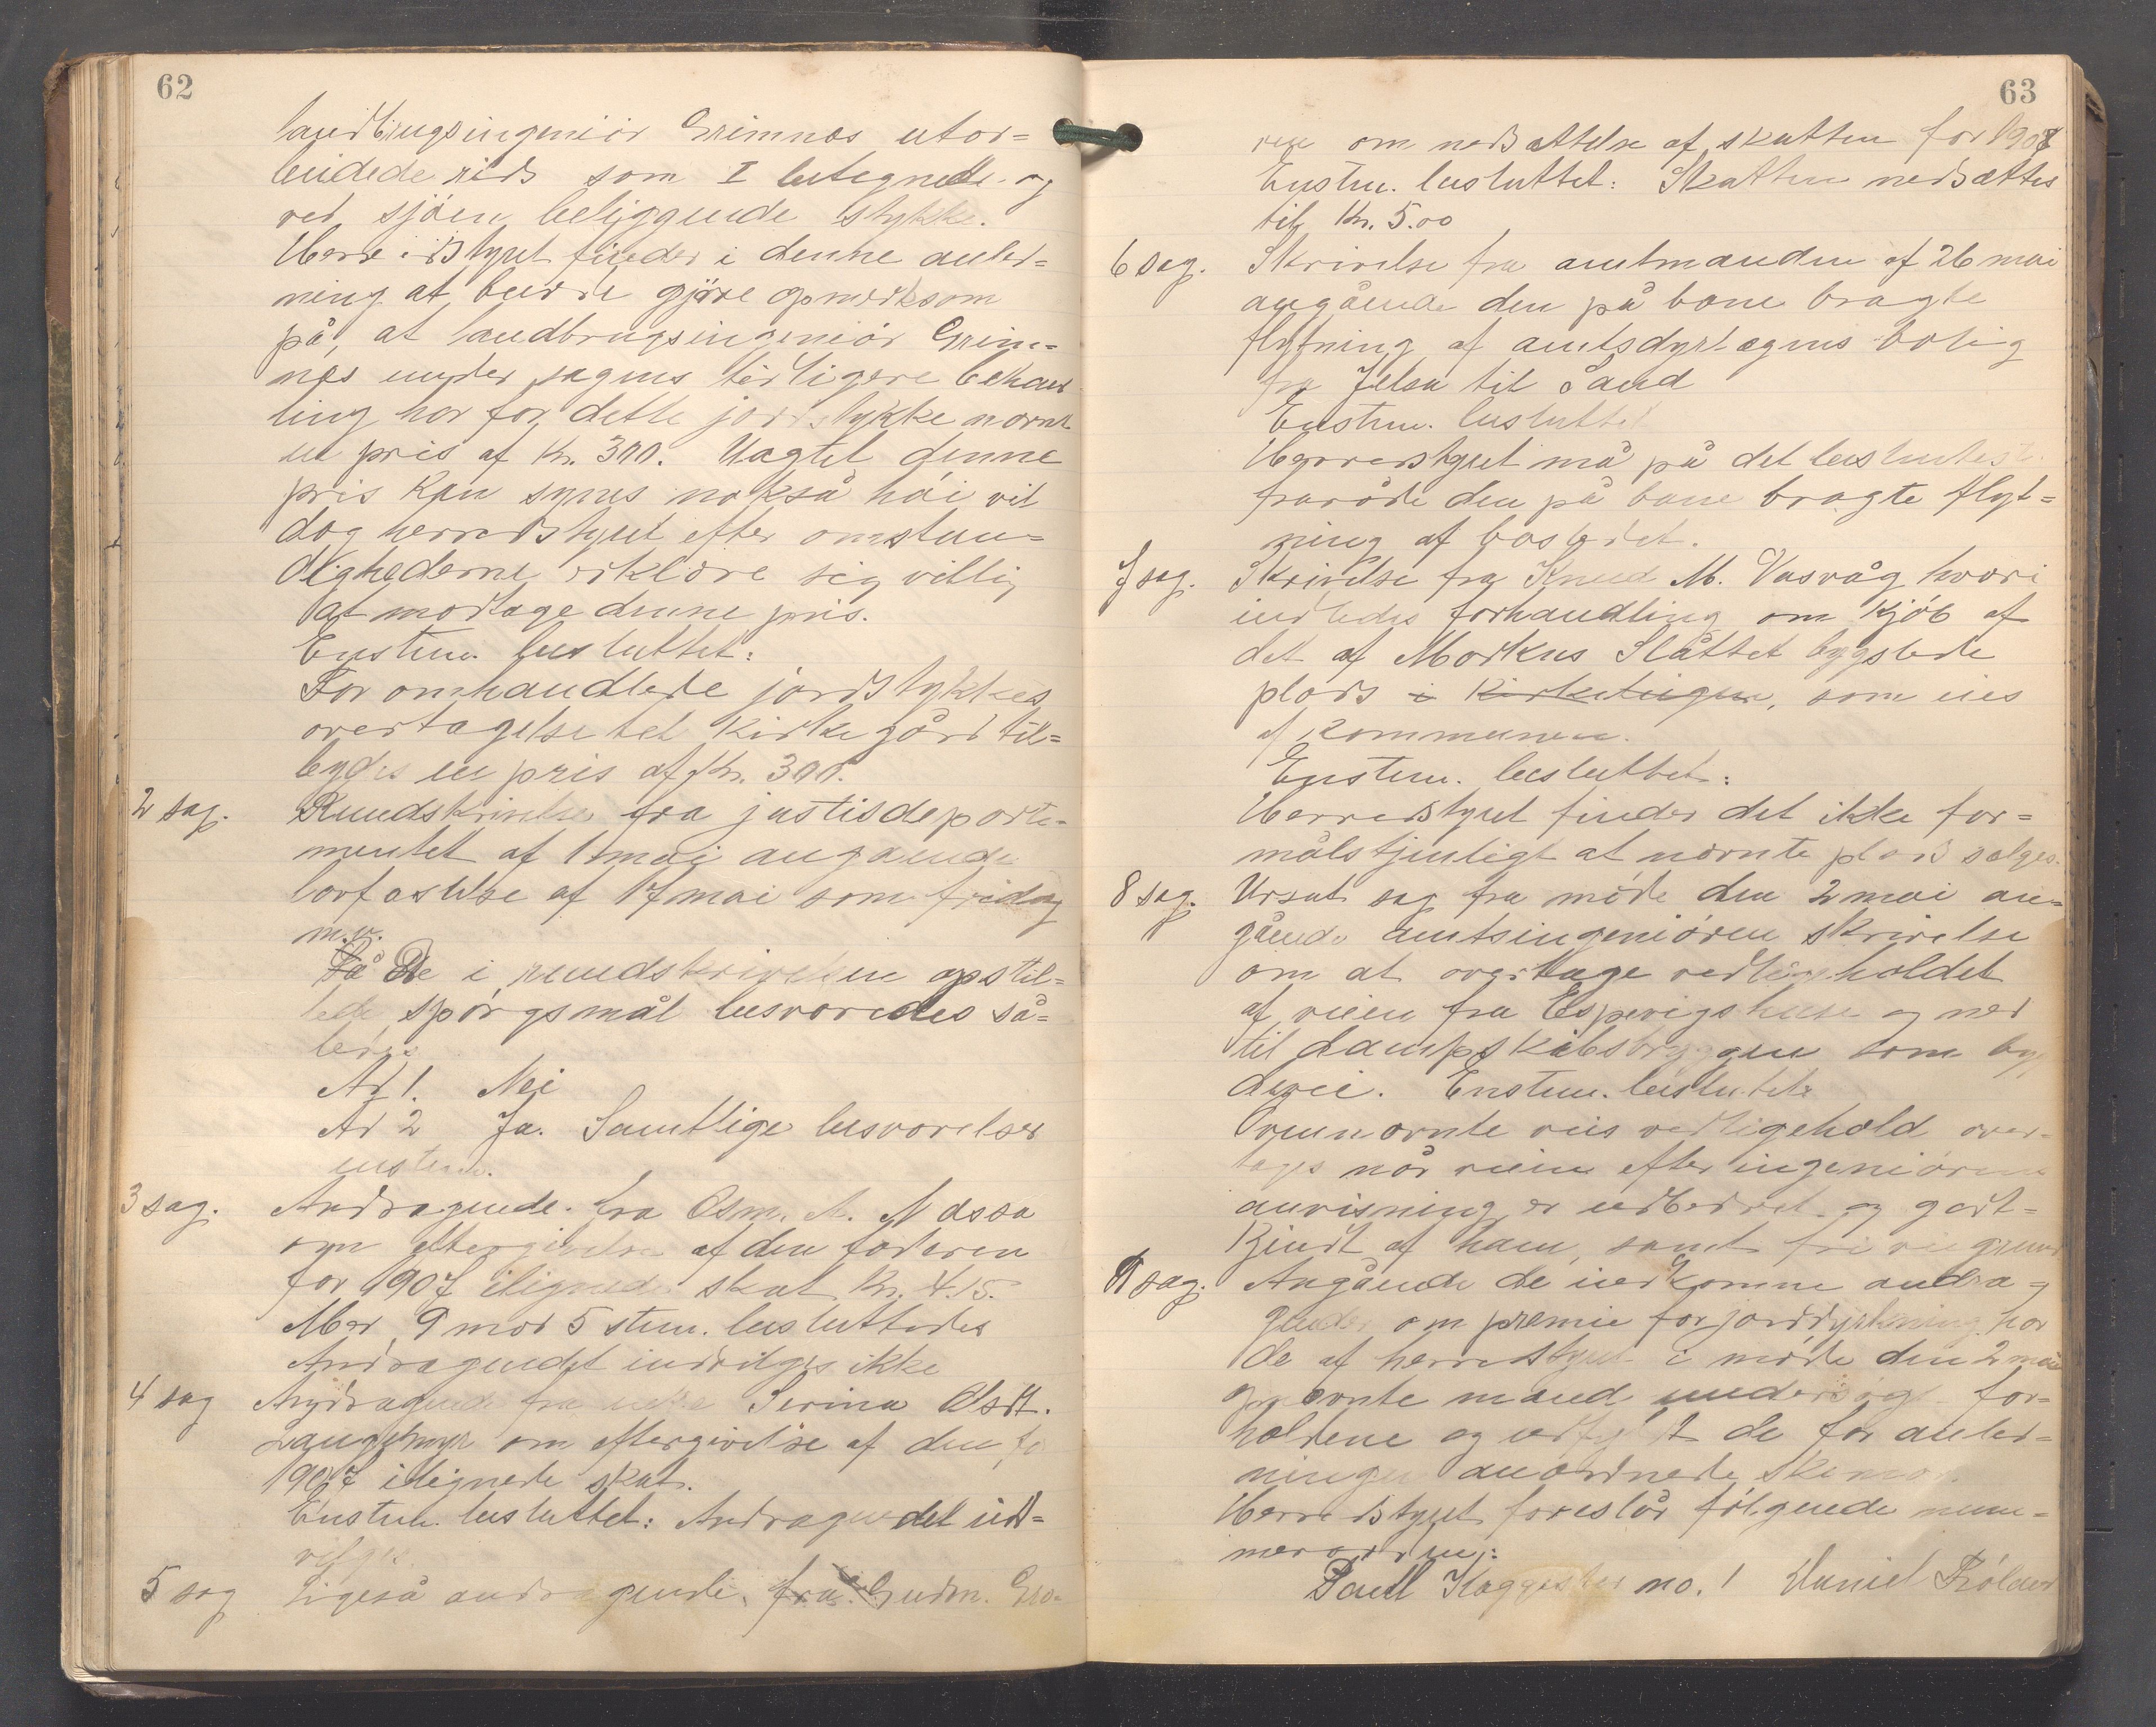 62
landbrugsingeniör Grimnæs utar-
beidede rids som I betegnede og
ved sjöen beliggende stykke.
Herredstyret finder i denne anled-
ning at burde gjöre opmerksom
på, at landbrugsingeniör Grim-
næs under sagens tidligere behand
ling har for dette jordstykke nævnt
en pris af Kr. 300. Uagtet denne
pris kan synes nokså höi vil
dog herredstyret efter omstæn-
dighederne erklære sig villig
at modtage denne pris.
Enstem. besluttet:
For omhandlede jordstykkes
overtagelse tel kirkegård til-
bydes en pris af Kr. 300.
2 sag. Rundskrivelse fra justisdeparte-
mentet af 1 mai angående
lovfæstelse af 17 mai som fridag
m.v.
På de i rundskrivelsen opstil-
lede spörgsmål besvaredes så-
ledes
Ad 1. Nei
Ad 2 Ja. Samtlige besvarelser
enstem.
3 sag. Andragende fra Osm. A. Nessa
om eftergivelse af den faderen
for 1907 ilignede skat Kr. 4.15.
Med 9 mod 5 stem. besluttedes
Andragendet indvilges ikke
4 sag Andragende fra enke Serina Olsdt.
Langemyr om eftergivelse af den fo
1907 ilignede skat.
Enstem. besluttet: Andragendet ind-
vilges.
5 sag Ligeså andragende fra Gudm. Gro-
63
ven om nedsættelse af skatten for 1907
Enstem. besluttet: Skatten nedsættes
til Kr. 5.00
6 sag. Skrivelse fra amtmanden af 26 mai
angående den på bane bragte
flytning af amtsdyrlægens bolig
fra Jelsa til Sand
Enstem. besluttet
Herredstyret må på det bestemteste
fraråde den på bane bragte flyt-
ning af bostedet.
7 sag. Skrivelse fra Knud M. Vasvåg hvori
indledes forhandling om kjöb af
det af Markus Slåttet bygslede
plads i Kirketeigen, som eies
af Kommunen.
Enstem. besluttet:
Herredstyret finder det ikke for-
målstjenligt at nævnte plads sælges.
8 sag. Udsat sag fra möde den 2 mai an-
gående amtsingeniören skrivelse
om at overtage vedligeholdet
af veien fra Espevigshuse og ned
til dampskibsbryggen som byg
devei. Enstem. besluttet
Ovennævnte veis vedligehold over-
tages når veien efter ingeniörens
anvisning er udbedret og godt-
kjendt af ham, samt fri veigrund
9 sag. Angående de indkomne andra-
gender om premie for jorddyrkning har
de af herredstyret i möde den 2 mai
opnævnte mænd undersögt for-
holdene og udfyldt de for anled-
ningen anordnede skemaer.
Herredstyret foreslår fölgende num-
merorden:
Poull Kaggestad no. 1 Daniel Rölder